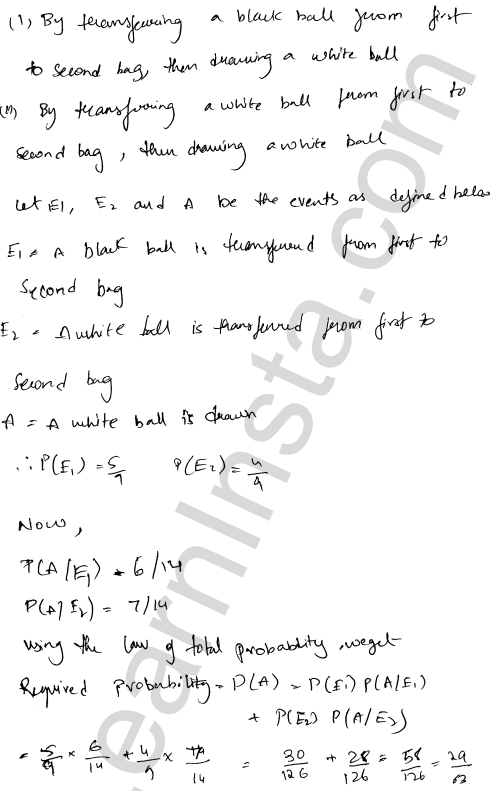 (i) By transferring a black ball from first
to second bag, then drawing a white ball
(ii) By transferring a white ball from first to
second bag, then drawing a white ball
Let E1, E2 and A be the events as defined below
E1 = A black ball is transferred from first to
Second bag
E2 = A white ball is transferred from first to
second bag
A = A white ball is drawn
∴ P(E1) = 5/9 P(E2) = 4/9
Now,
P(A/E1) = 6/14
P(A/E2) = 7/14
Using the law of total probability, we get
Required Probability = P(A) = P(E1) P(A/E1)
+ P(E2) P(A/E2)
= 5/9 × 6/14 + 4/9 × 7/14 = 30/126 + 28/126 = 58/126 = 29/63
learnInsta.com